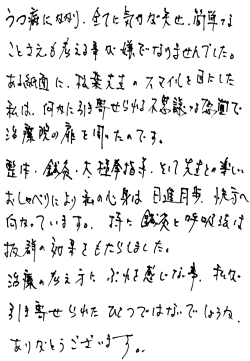 うつ病になり、全てに気力な失せ、簡単な
ことさえも考える事な嫌でなりませんでした。
ある紙面に、板葉先生のスマイルを目にした
私は、何かに引き寄せられる不思議な空間で
治療院の扉を開いたのです。
整体・鍼灸・太極拳指導、そして先生との楽しい
おしゃべりにより私の心身は日進月歩、快方へ
向かっています。特に鍼灸と呼吸法は
抜群の効果をもたらしました。
治療の考え方にぶれを感じな事、私な
引き寄せられたひとつではないでしょうか。
ありがとうございます。